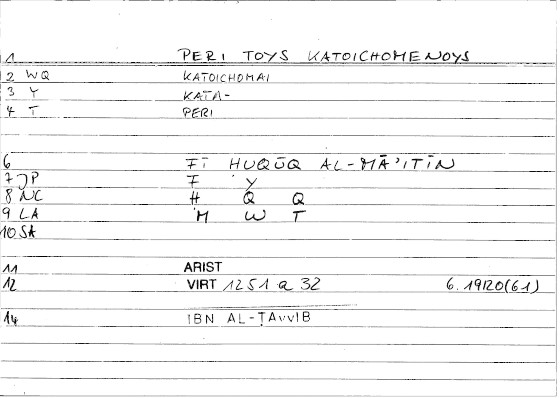 1 PERI TOYS KATOICHOMENOYS
2 WQ KATOICHOMAI
3 Y KATA-
4 T PERI
6 FĪ HUQŪQ AL-MĀ'ITĪN
7 JP F Y
8 NC H Q Q
9 LA M W T
10 SA
11 ARIST
12 VIRT 1251 a 32 6.19120(61)
14 IBN AL-ṬAYYIB